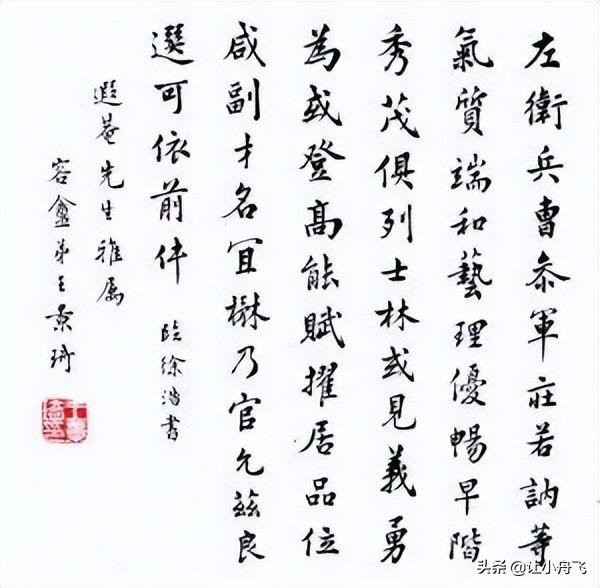 左衛兵曹叅軍莊若訥等
氣質端和藝理優暢早階
秀茂俱列士林或見義勇
為或登高能賦擢居品位
咸副才名宜楙乃官允茲良
選可依前件 臨徐浩書
遐菴先生雅属
容盫弟王景琦
头条 @让小舟飞